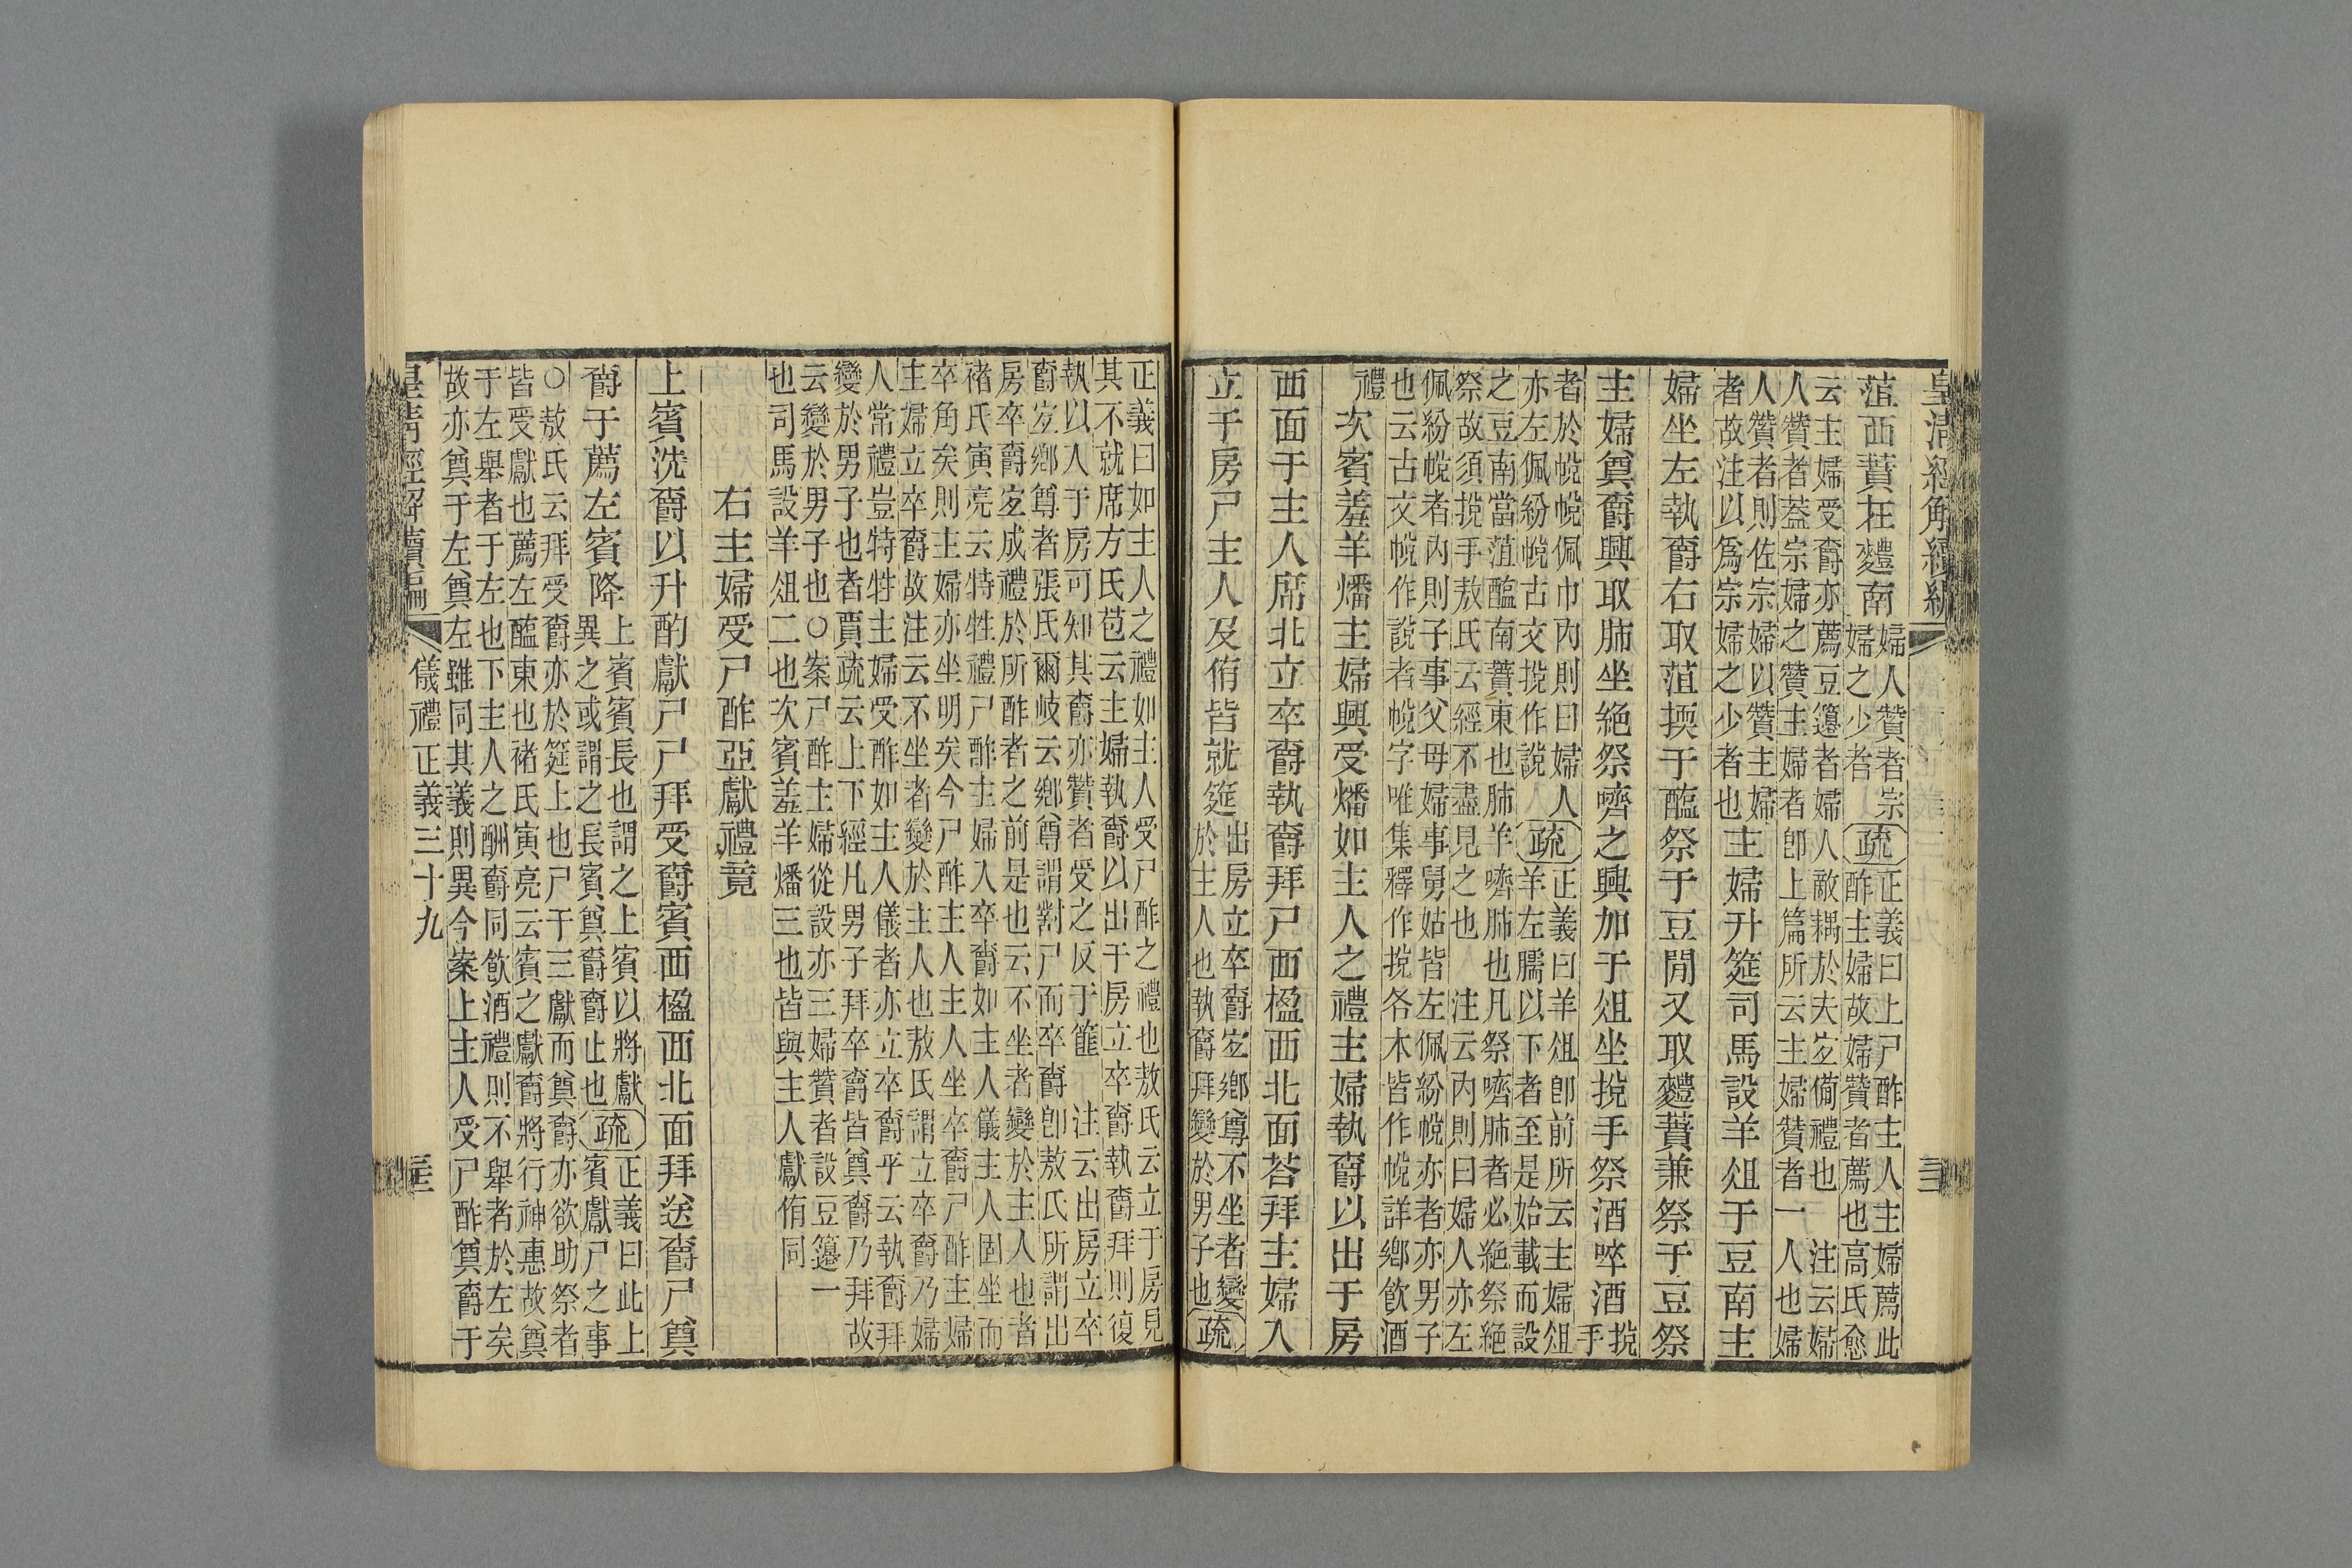 皇淸經解續編
菹西蕡在麷南婦人贊者宗婦之少者疏正義曰上尸酢主人主婦薦此酢主婦故婦贊者薦也高氏愈
云主婦受爵亦薦豆籩者婦人敵耦於夫宜備禮也注云婦
人贊者蓋宗婦之贊主婦者卽上篇所云主婦贊者一人也婦
人贊者則佐宗婦以贊主婦
者故注以爲宗婦之少者也主婦升筵司馬設羊俎于豆南主
婦坐左執爵右取菹㨎于醢祭于豆閒又取麷蕡兼祭于豆祭
主婦奠爵興取肺坐絶祭嚌之興加于俎坐挩手祭酒啐酒挩手
者於帨帨佩巾內則曰婦人
亦左佩紛帨古文挩作說疏正義曰羊俎卽前所云主婦俎羊左臑以下者至是始載而設
之豆南當菹醢南蕡東也肺羊嚌肺也凡祭嚌肺者必絶祭絶
祭故須挩手敖氏云經不盡見之也注云內則曰婦人亦左
佩紛帨者內則子事父母婦事舅姑皆左佩紛帨亦者亦男子
也云古文帨作說者帨字唯集釋作挩各本皆作帨詳鄉飮酒
禮次賓羞羊燔主婦興受燔如主人之禮主婦執爵以出于房
西面于主人席北立卒爵執爵拜尸西楹西北面荅拜主婦入
立于房尸主人及侑皆就筵出房立卒爵宜鄉尊不坐者變於主人也執爵拜變於男子也疏
正義曰如主人之禮如主人受尸酢之禮也敖氏云立于房見
其不就席方氏苞云主婦執爵以出于房立卒爵執爵拜則復
執以入于房可知其爵亦贊者受之反于篚注云出房立卒
爵宜鄉尊者張氏爾岐云鄉尊謂對尸而卒爵卽敖氏所謂出
房卒爵宜成禮於所酢者之前是也云不坐者變於主人也者
褚氏寅亮云特牲禮尸酢主婦入卒爵如主人儀主人固坐而
卒角矣則主婦亦坐明矣今尸酢主人主人坐卒爵尸酢主婦
主婦立卒爵故注云不坐者變於主人也敖氏謂立卒爵乃婦
人常禮豈特牲主婦受酢如主人儀者亦立卒爵乎云執爵拜
變於男子也者賈疏云上下經凡男子拜卒爵皆奠爵乃拜故
云變於男子也○案尸酢主婦從設亦三婦贊者設豆籩一
也司馬設羊俎二也次賓羞羊燔三也皆與主人獻侑同
右主婦受尸酢亞獻禮竟
上賓洗爵以升酌獻尸尸拜受爵賓西楹西北面拜送爵尸奠
爵于薦左賓降上賓賓長也謂之上賓以將獻異之或謂之長賓奠爵爵止也疏正義曰此上賓獻尸之事
○敖氏云拜受爵亦於筵上也尸于三獻而奠爵亦欲助祭者
皆受獻也薦左醢東也褚氏寅亮云賓之獻爵將行神惠故奠
于左舉者于左也下主人之酬爵同飮酒禮則不舉者於左矣
故亦奠于左奠左雖同其義則異今案上主人受尸酢奠爵于
皇淸經解續編 儀禮正義三十九